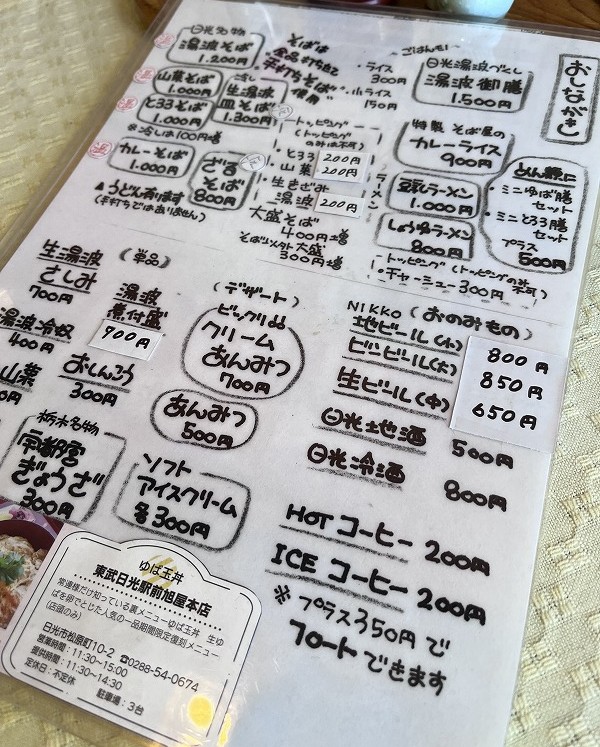 おしながき
日光名物
湯波そば
1.200円
温
山菜そば
1.000円
温
とろろそば
1.000円
※冷しは100円増
温
カレーそば
1.000円
▲うどん有ります
(手打ちではありません)
そばは
全品打ち立て
手打ちそば
使用
冷し
生湯波
皿そば
1.300円
ざる
そば
800円
・ライス
300円
・小ライス
150円
トッピング
(トッピング
のみは不可)
・とろろ 200円
・山菜 200円
・生きざみ
湯波 200円
大盛そば
400円増
そば以外大盛
300円増
ごはんもの
日光湯波づくし
湯波御膳
1.500円
特製 そば屋の
カレーライス
900円
ラーメン
豆乳ラーメン
1.000円
しょうゆラーメン
800円
トッピング(トッピングのみ不可)
・チャーシュー300円
めん類に
・ミニゆば膳
セット
・ミニとろろ膳
セット
プラス
500円
(単品)
生湯波
さしみ
700円
湯波
煮付盛
700円
湯波冷奴
400円
山菜
おしんこ
300円
栃木名物
宇都宮
ぎょうざ
300円
(デザート)
ビックリ
クリーム
あんみつ
700円
あんみつ
500円
ソフト
アイスクリーム
各300円
NIKKO (おのみもの)
地ビール(小) 800円
ビンビール(大) 850円
生ビール(中) 650円
日光地酒 500円
日光冷酒 800円
HOT コーヒー 200円
ICE コーヒー 200円
※プラス350円で
フロートできます
ゆば玉丼
東武日光駅前旭屋本店
常連様だけ知っている裏メニューゆば玉丼 生ゆ
ばを卵でとじた人気の一品期間限定復刻メニュー
(店頭のみ)
日光市松原町10-2 ☎0288-54-0674
営業時間：11:30~15:00
提供時間：11:30~14:30
定休日：不定休
駐車場：3台